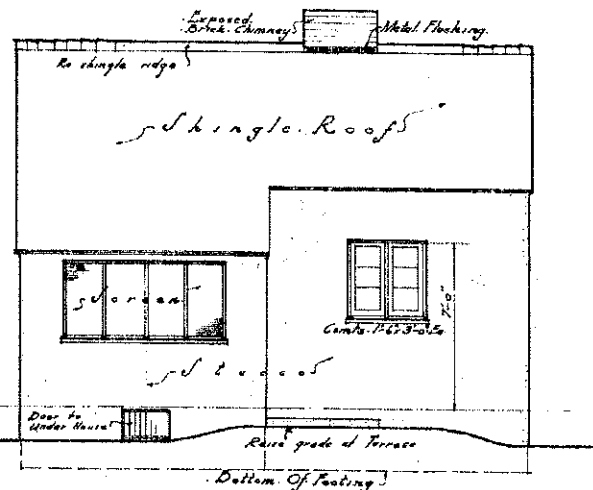 Exposed
Brick Chimney
Metal Flashing.
Re shingle ridge
Shingle Roof
Screen
7'-0"
Stucco
Door to
Under House
Raise grade at Terrace
Bottom Of Footing